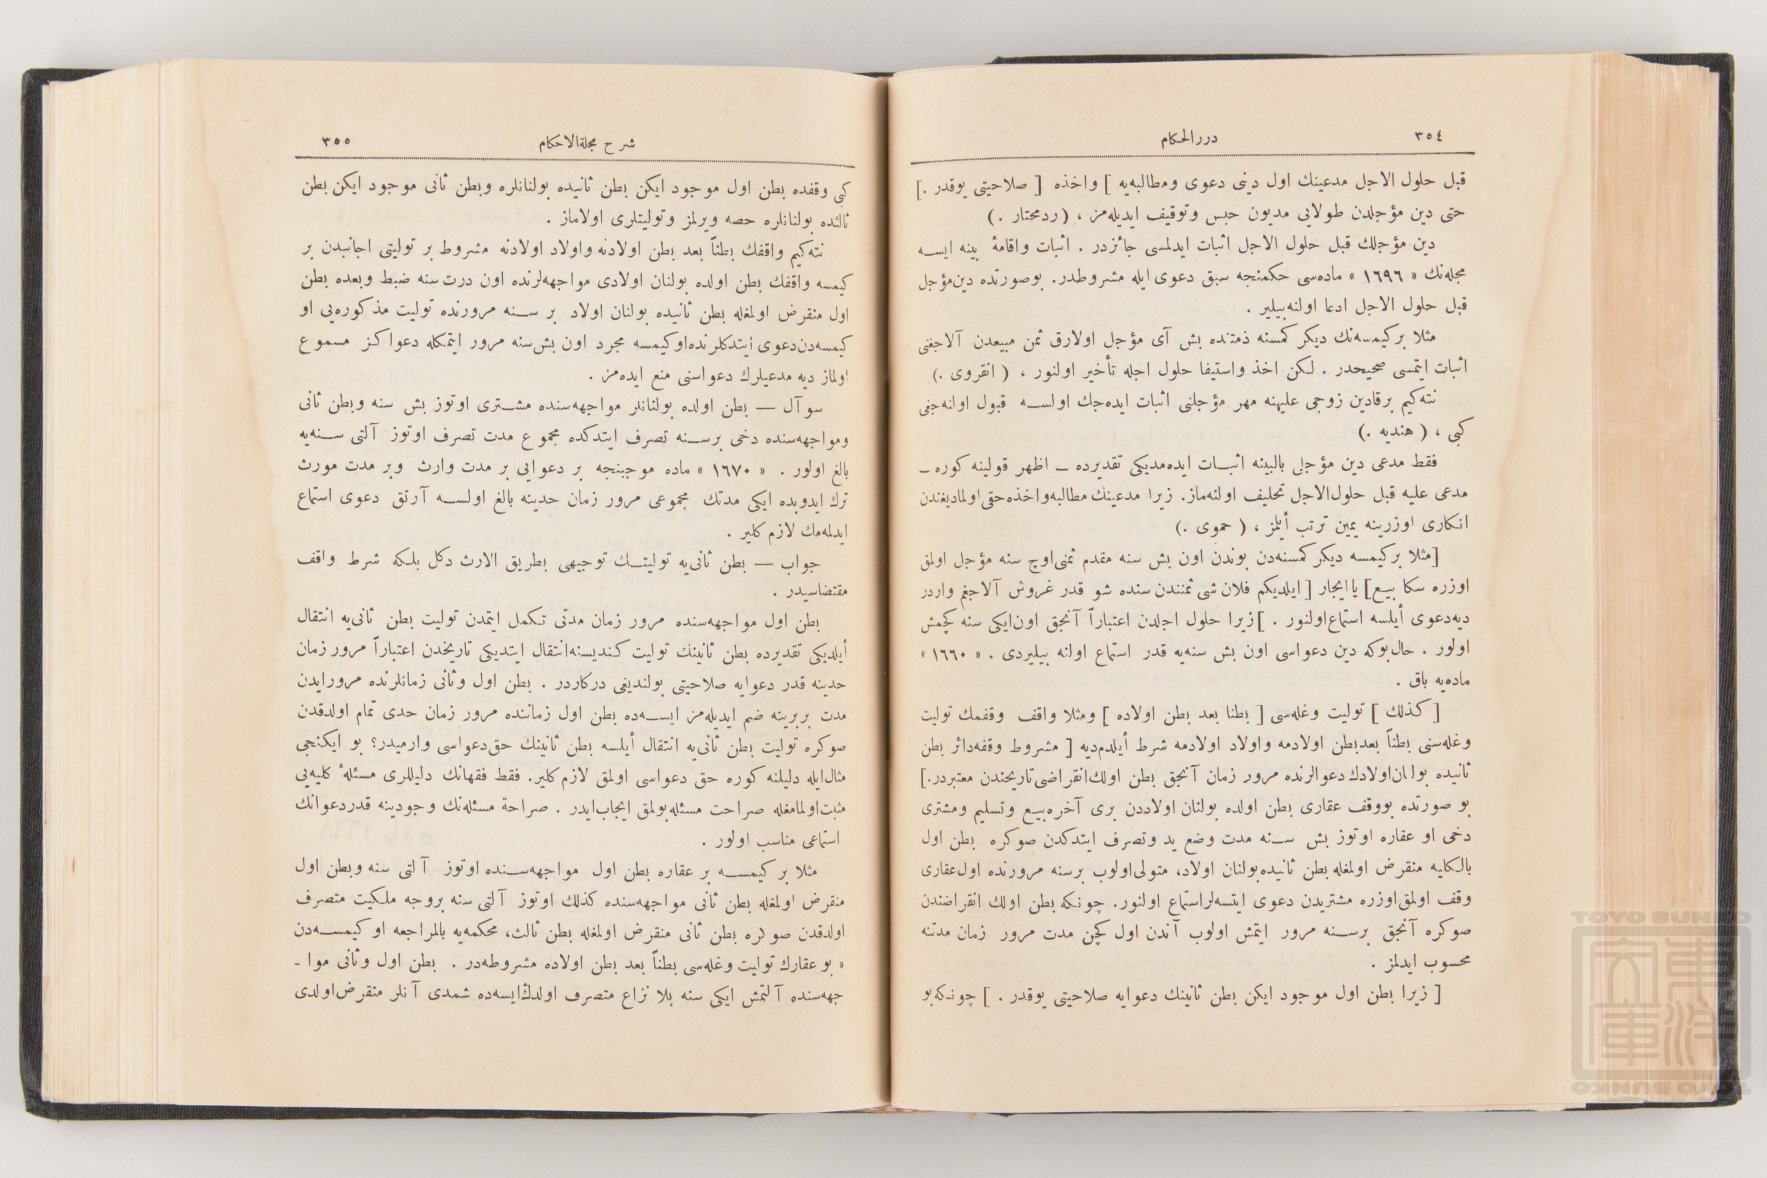 ٣٥٤
دررالحكام
قبل حلول الاجل مدعينك اول دينى دعوى ومطالبه‌يه ] واخذه [ صلاحيتى يوقدر .]
حتى دين مؤجلدن طولايى مديون حبس وتوقيف ايديله‌مز ، (ردمحتار .)
دين مؤجلك قبل حلول الاجل اثبات ايدلمسى جائزدر . اثبات واقامهٔ بينه ايسه
مجله‌نك « ١٦٩٦ » ماده‌سى حكمنجه سبق دعوى ايله مشروطدر. بوصورتده دين‌مؤجل
قبل حلول الاجل ادعا اولنه‌بيلير .
مثلا بركيمسه‌نك ديكر كمسنه ذمتنده بش آى مؤجل اولارق ثمن مبيعدن آلاجغنى
اثبات ايتمسى صحيحدر . لكن اخذ واستيفا حلول اجله تأخير اولنور ، ( انقروى .)
نته‌كيم برقادين زوجى عليهنه مهر مؤجلنى اثبات ايده‌جك اولسه قبول اولنه‌جغى
كبى ، ( هنديه .)
فقط مدعى دين مؤجلى بالبينه اثبات ايده‌مديكى تقديرده ــ اظهر قولينه كوره ــ
مدعى عليه قبل حلول‌الاجل تحليف اولنه‌ماز. زيرا مدعينك مطالبه‌واخذه‌حقى‌اولمايغندن
انكارى اوزرينه يمين ترتب أيلمز ، ( حموى .)
[مثلا بركيمسه ديكر كمسنه‌دن بوندن اون بش سنه مقدم ثمنى‌اوچ سنه مؤجل اولمق
اوزره سكا بيع] ياايجار [ ايلديكم فلان شى ثمنندن سنده شو قدر غروش آلاجغم واردر
ديه‌دعوى أيلسه استماع‌اولنور . ] زيرا حلول اجلدن اعتباراً آنجق اون‌ايكى سنه كچمش
اولور . حال‌بوكه دين دعواسى اون بش سنه‌يه قدر استماع اولنه بيليردى . « ١٦٦٠ »
ماده‌يه باق .
[ كذلك ] توليت وغله‌سى [ بطنا بعد بطن اولاده ] ومثلا واقف وقفمك توليت
وغله‌سنى بطناً بعدبطن اولادمه واولاد اولادمه شرط أيلدم‌ديه [ مشروط وقفه‌دائر بطن
ثانيده بولنان‌اولادك‌دعوالرنده مرور زمان آنجق بطن اولك‌انقراضى‌تاريخندن معتبردر.]
بو صورتده بووقف عقارى بطن اولده بولنان اولاددن برى آخره‌بيع وتسليم ومشترى
دخى او عقاره اوتوز بش سنه مدت وضع يد وتصرف ايتدكدن صوكره بطن اول
بالكليه منقرض اولمغله بطن ثانيده‌بولنان اولاد، متولى‌اولوب برسنه مرورنده اول‌عقارى
وقف اولمق‌اوزره مشتريدن دعوى ايتسه‌لراستماع اولنور. چونكه بطن اولك انقراضندن
صوكره آنجق برسنه مرور ايتمش اولوب آندن اول كچن مدت مرور زمان مدتنه
محسوب ايدلمز .
[ زيرا بطن اول موجود ايكن بطن ثانينك دعوايه صلاحيتى يوقدر . ] چونكه‌بو
شرح مجلة‌الاحكام
٣٥٥
كبى وقفده بطن اول موجود ايكن بطن ثانيده بولنانلره وبطن ثانى موجود ايكن بطن
ثالثده بولنانلره حصه ويرلمز وتوليتلرى اولاماز .
نته‌كيم واقفك بطناً بعد بطن اولادنه واولاد اولادنه مشروط بر توليتى اجانبدن بر
كيمسه واقفك بطن اولده بولنان اولادى مواجهه‌لرنده اون درت سنه ضبط وبعده بطن
اول منقرض اولمغله بطن ثانيده بولنان اولاد بر سنه مرورنده توليت مذكوره‌يى او
كيمسه‌دن‌دعوى ايتدكلرنده‌اوكيمسه مجرد اون بش‌سنه مرور ايتمكله دعواكز مسموع
اولماز ديه مدعيلرك دعواسنى منع ايده‌مز .
سوآل — بطن اولده بولنانلر مواجهه‌سنده مشترى اوتوز بش سنه وبطن ثانى
ومواجهه‌سنده دخى برسنه تصرف ايتدكده مجموع مدت تصرف اوتوز آلتى سنه‌يه
بالغ اولور . « ١٦٧٠ » ماده موجبنجه بر دعوايى بر مدت وارث وبر مدت مورث
ترك ايدوبده ايكى مدتك مجموعى مرور زمان حدينه بالغ اولسه آرتق دعوى استماع
ايدلمه‌مك لازم كلير .
جواب — بطن ثانى‌يه توليتك توجيهى بطريق الارث دكل بلكه شرط واقف
مقتضاسيدر .
بطن اول مواجهه‌سنده مرور زمان مدتى تكمل ايتمدن توليت بطن ثانى‌يه انتقال
أيلديكى تقديرده بطن ثانينك توليت كنديسنه‌انتقال ايتديكى تاريخدن اعتباراً مرور زمان
حدينه قدر دعوايه صلاحيتى بولنديغى دركاردر . بطن اول وثانى زمانلرنده مرورايدن
مدت بربرينه ضم ايديله‌مز ايسه‌ده بطن اول زماننده مرور زمان حدى تمام اولدقدن
صوكره توليت بطن ثانى‌يه انتقال أيلسه بطن ثانينك حق‌دعواسى وارميدر؟ بو ايكنجى
مثال‌ايله دليلنه كوره حق دعواسى اولمق لازم‌كلير. فقط فقهانك دليللرى مسئلهٔ كليه‌يى
مثبت‌اولمامغله صراحت مسئله‌بولمق ايجاب‌ايدر . صراحة مسئله‌نك وجودينه قدردعوانك
استماعى مناسب اولور .
مثلا بر كيمسه بر عقاره بطن اول مواجهه‌سنده اوتوز آلتى سنه وبطن اول
منقرض اولمغله بطن ثانى مواجهه‌سنده كذلك اوتوز آلتى سنه بروجه ملكيت متصرف
اولدقدن صوكره بطن ثانى منقرض اولمغله بطن ثالث، محكمه‌يه بالمراجعه او كيمسه‌دن
« بو عقارك توليت وغله‌سى بطناً بعد بطن اولاده مشروطه‌در . بطن اول وثانى موا ـ
جهه‌سنده آلتمش ايكى سنه بلا نزاع متصرف اولدك‌ايسه‌ده شمدى آنلر منقرض‌اولدى
TOYO BUNKO